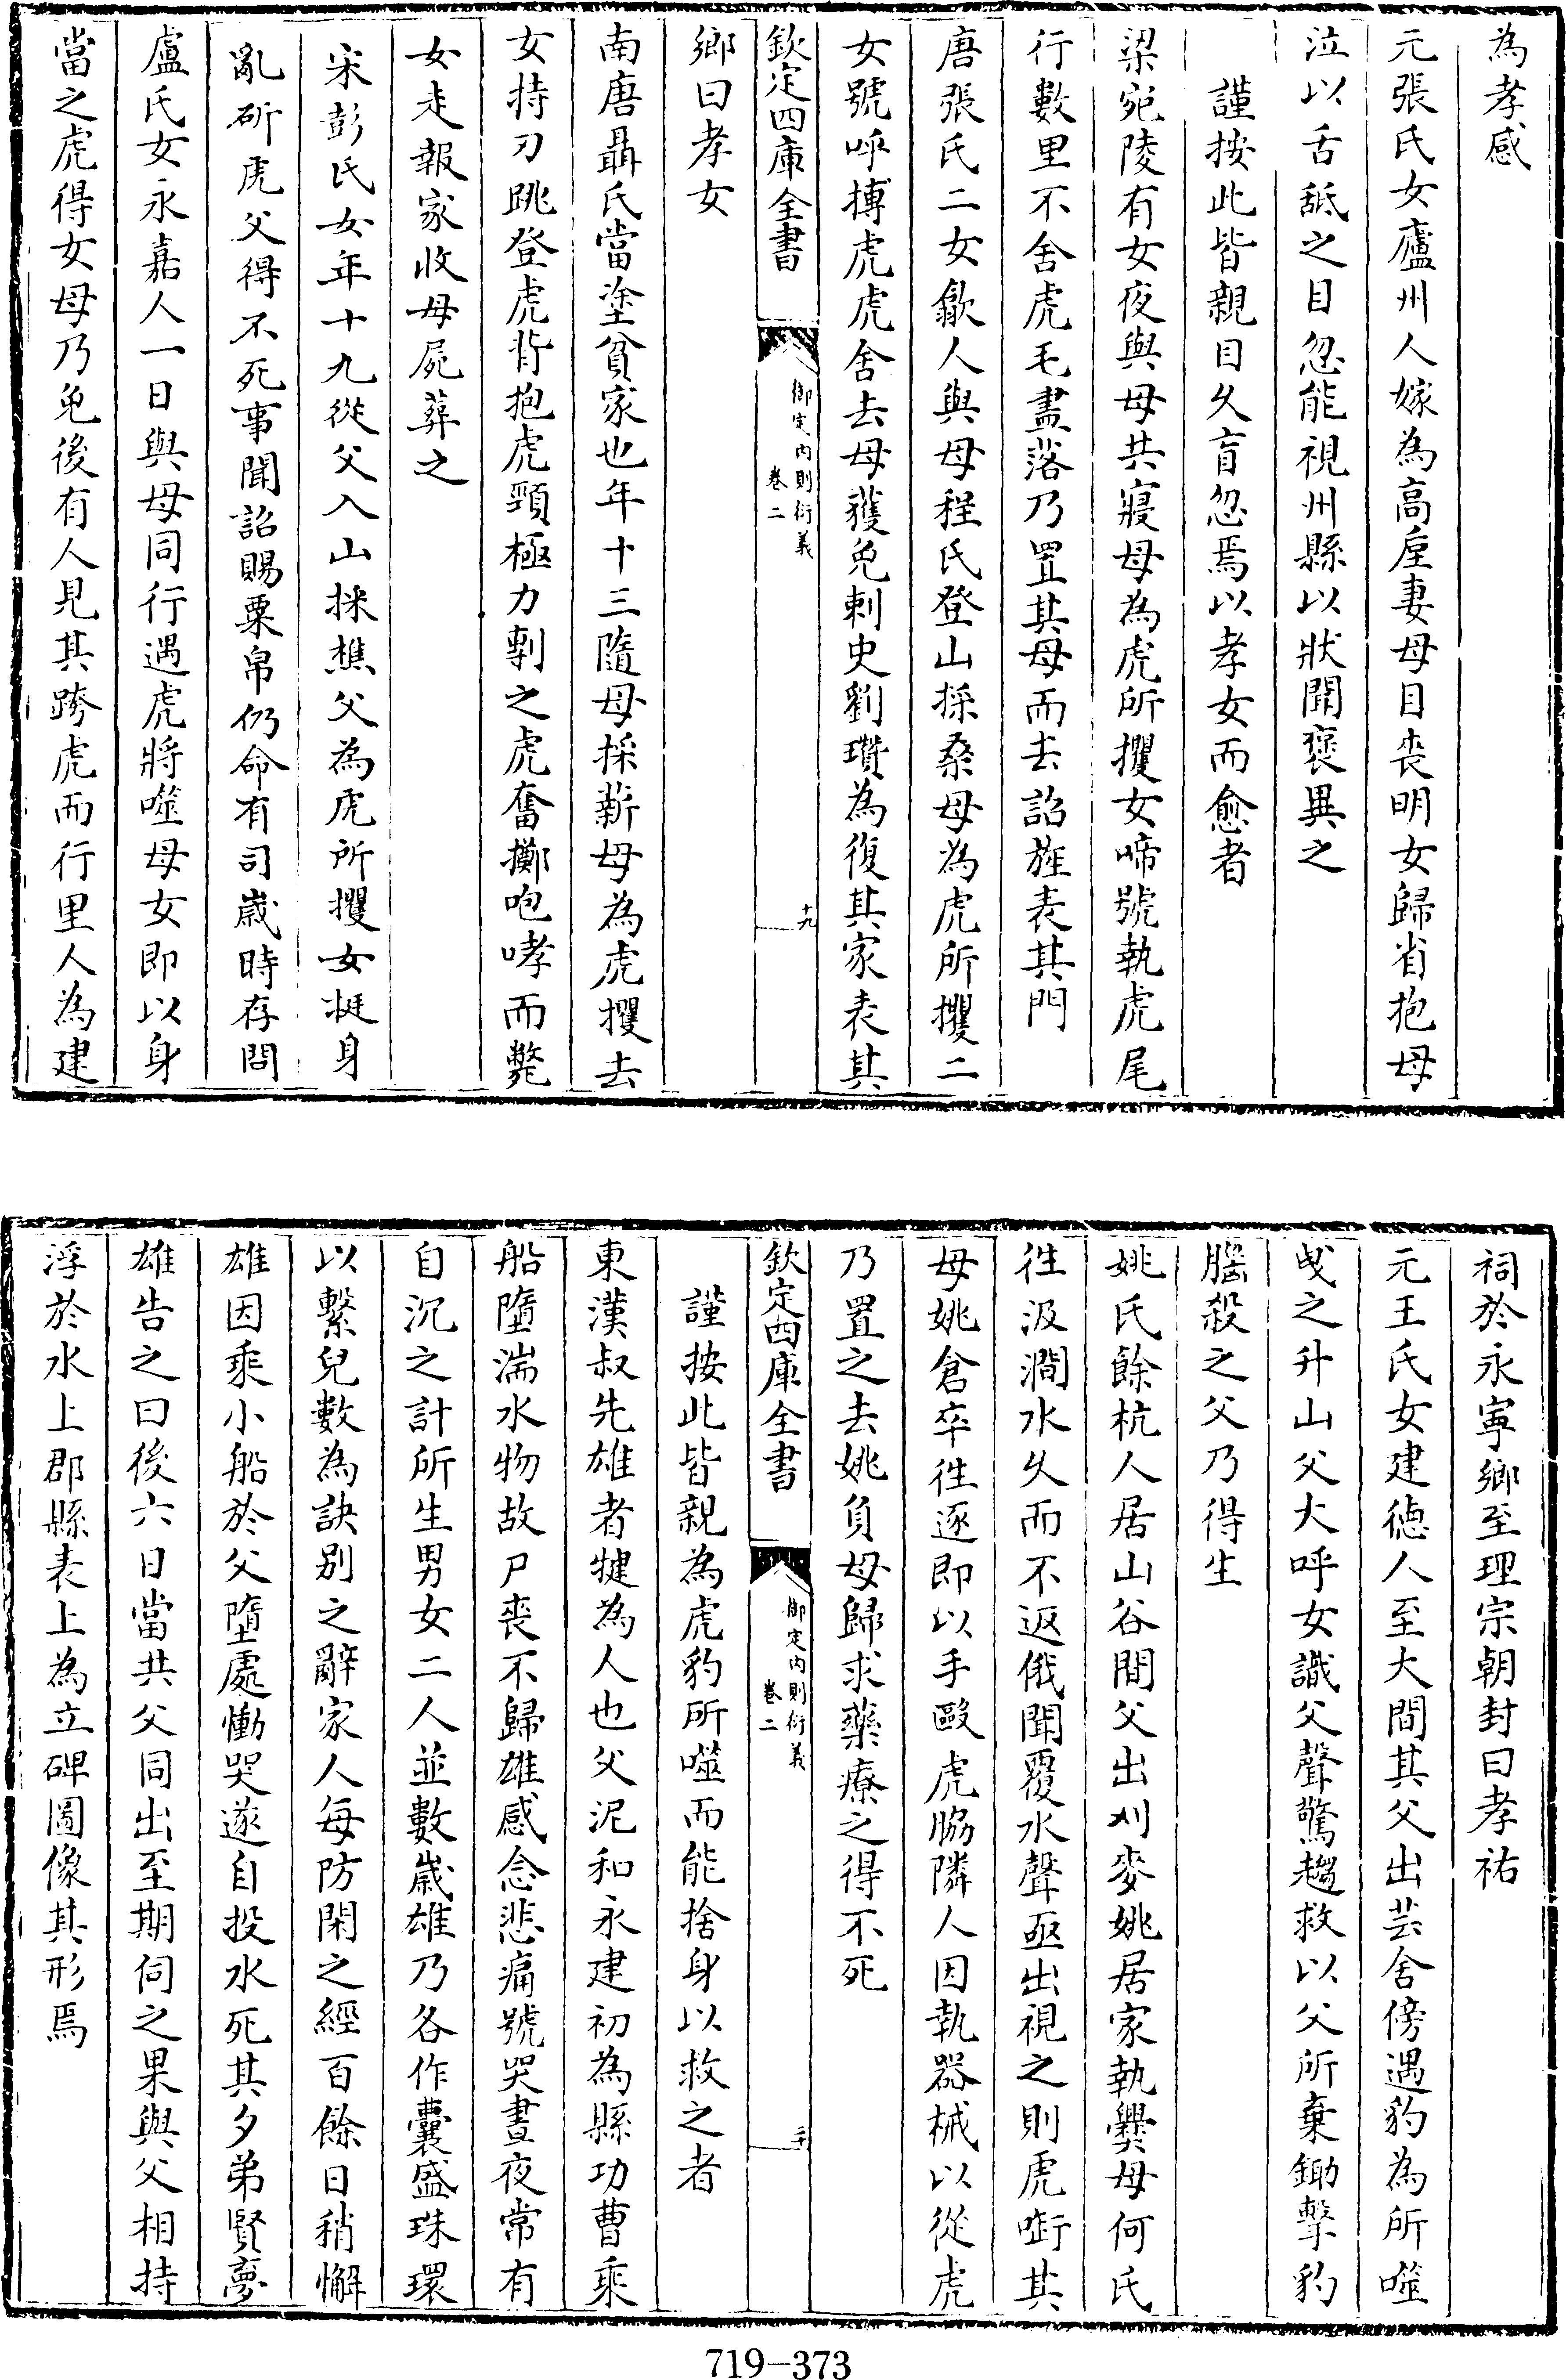 為孝感
元張氏女廬州人嫁為高垕妻母目喪明女歸省抱母
泣以舌舐之目忽能視州縣以狀聞褒異之
謹按此皆親目久盲忽焉以孝女而愈者
梁宛陵有女夜與母共寢母為虎所攫女啼號執虎尾
行數里不舍虎毛盡落乃置其母而去詔旌表其門
唐張氏二女歙人與母程氏登山採桑母為虎所攫二
女號呼搏虎虎舍去母獲免刺史劉瓚為復其家表其
欽定四庫全書
御定內則衍義
卷二
十九
鄉曰孝女
南唐聶氏當塗貧家也年十三隨母採薪母為虎攫去
女持刃跳登虎背抱虎頸極力剚之虎奮擲咆哮而斃
女走報家收母屍葬之
宋彭氏女年十九從父入山採樵父為虎所攫女挺身
亂斫虎父得不死事聞詔賜粟帛仍命有司歲時存問
盧氏女永嘉人一日與母同行遇虎將噬母女即以身
當之虎得女母乃免後有人見其跨虎而行里人為建
祠於永寧鄉至理宗朝封曰孝祐
元王氏女建德人至大間其父出芸舍傍遇豹為所噬
曵之升山父大呼女識父聲驚趨救以父所棄鋤擊豹
腦殺之父乃得生
姚氏餘杭人居山谷間父出刈麥姚居家執爨母何氏
徃汲澗水久而不返俄聞覆水聲亟出視之則虎啣其
母姚倉卒徃逐即以手毆虎脇隣人因執器械以從虎
乃置之去姚負母歸求藥療之得不死
欽定四庫全書
御定內則衍義
卷二
二十
謹按此皆親為虎豹所噬而能捨身以救之者
東漢叔先雄者犍為人也父泥和永建初為縣功曹乘
船墮湍水物故尸喪不歸雄感念悲痛號哭晝夜常有
自沉之計所生男女二人並數歲雄乃各作囊盛珠環
以繫兒數為訣別之辭家人每防閑之經百餘日稍懈
雄因乘小船於父墮處慟哭遂自投水死其夕弟賢夢
雄告之曰後六日當共父同出至期伺之果與父相持
浮於水上郡縣表上為立碑圖像其形焉
719-373